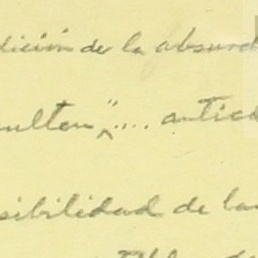 dición de la absurd
sulten ".... antici
sibilidad de la